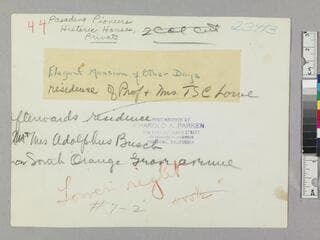 44
Pasadena Pioneers
Historic Houses
Private
2 Col Cut
23413
Elegant Mansion of Other Days
residence of Prof + Mrs TSC Lowe
afterwards residence
Mr + Mrs Adolphus Busch
on South Orange Grove avenue
HAROLD A. PARKER
Lower right
#7-2